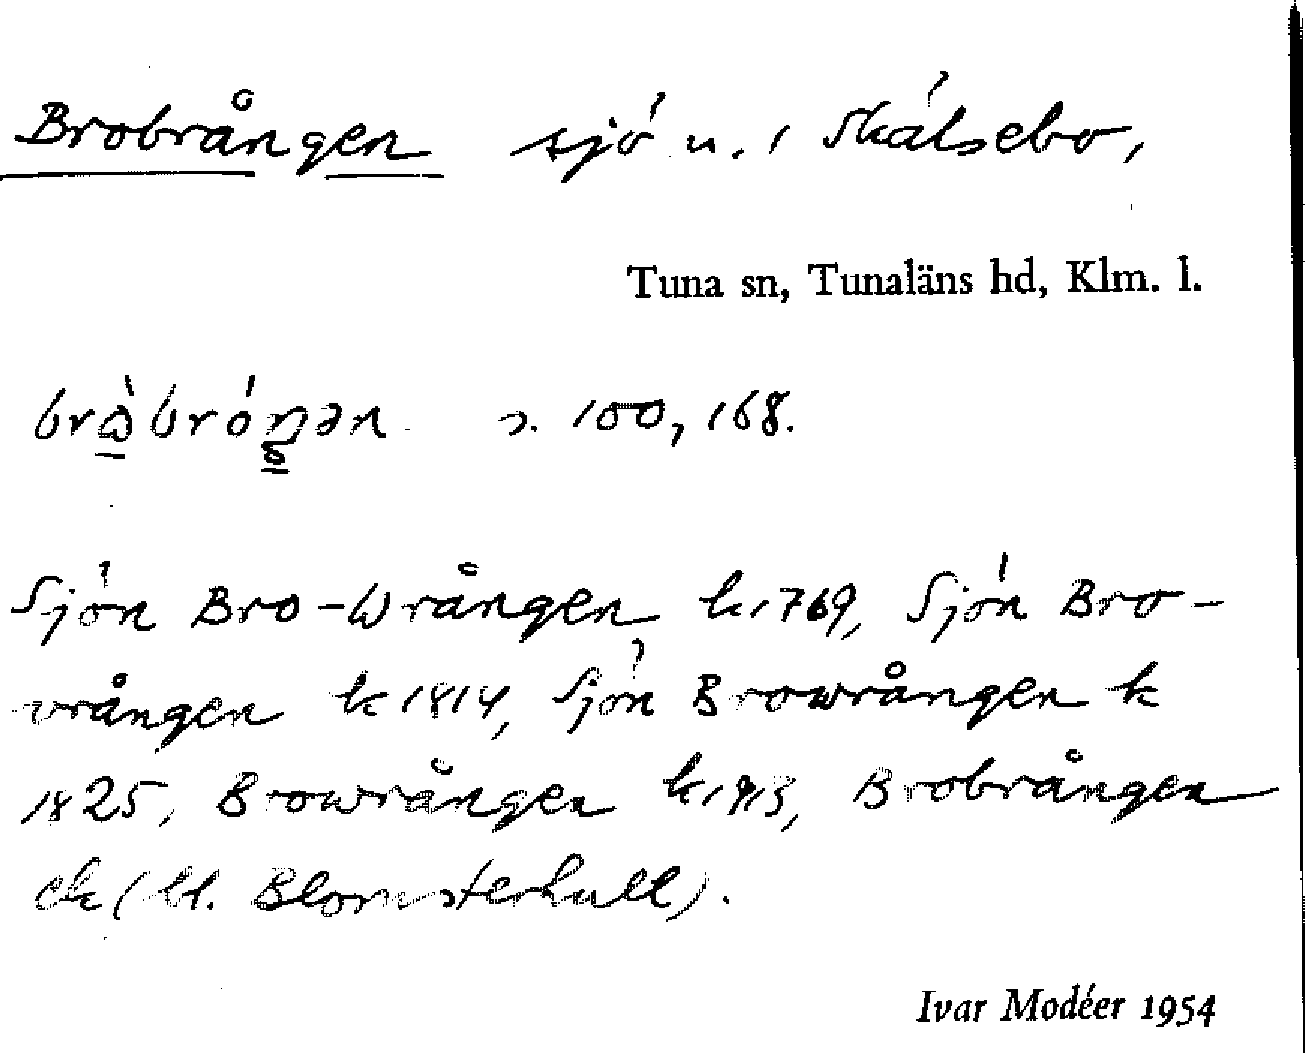 Brobrången sjö n. i Skälsebo,
Tuna sn, Tunaläns hd, Klm. l.
s. 100, 168.
Sjön Bro-Wrången k 1769, Sjön Bro-
vrången k 1814, Sjön Browrången k
1825, Browrången k 1913, Brobrången
ek (bl. Blomsterhult).
Ivar Modéer 1954